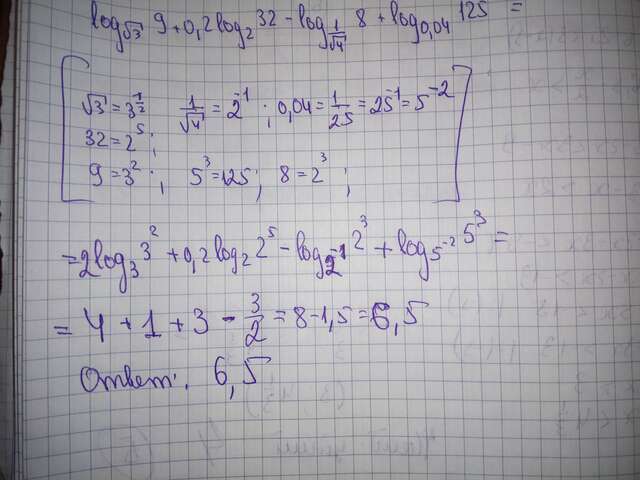 log_{√3} 9 + 0,2 log_2 32 - log_{1/√4} 8 + log_{0,04} 125 =
√3 = 3^{1/2} 1/√4 = 2^{-1} ; 0,04 = 1/25 = 25^{-1} = 5^{-2}
32 = 2^5 ;
9 = 3^2 ; 5^3 = 125 ; 8 = 2^3 ;
= 2 log_3 3^2 + 0,2 log_2 2^5 - log_{2^{-1}} 2^3 + log_{5^{-2}} 5^3 =
= 4 + 1 + 3 - 3/2 = 8 - 1,5 = 6,5
Ответ. 6,5